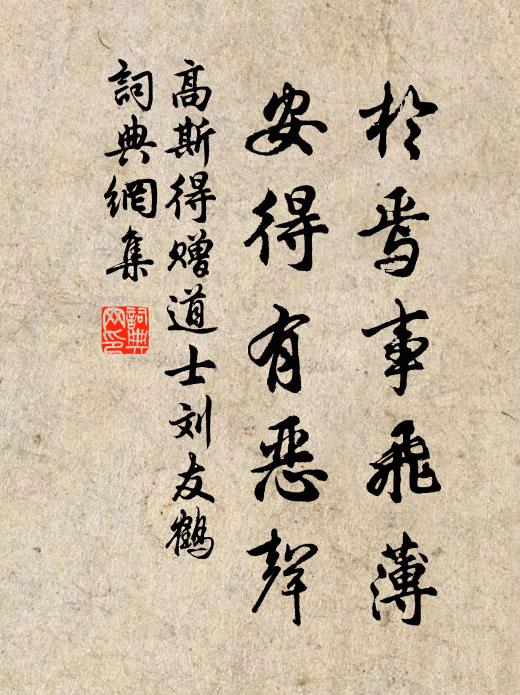 於焉事飛薄
安得有惡聲
高斯得贈道士刘友鶴
詞典網集
詞典網印